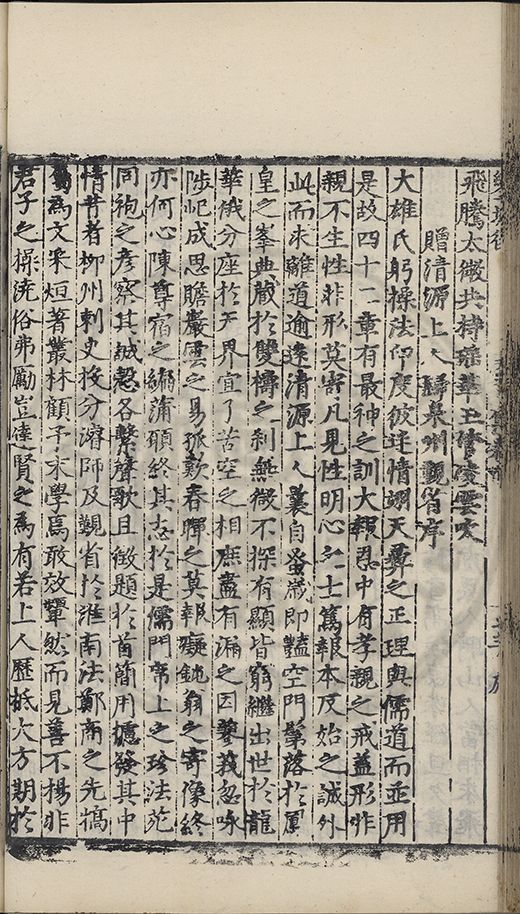 飛騰太微共樽瓊華王管凌雲吹
贈清源上人歸泉州覲省序
大雄氏躬操法印度彼迷情翊天彞之正理與儒道而並用
是故四十二章有最神之訓大報恩中有孝親之戒蓋形非
親不生性非形莫寄凡見性明心之士篤報本反始之誠外
此而求離道逾遠清源上人曩自蚤歲即豔空門髡落於鳳
皇之峯典藏於雙檮之剎無微不探有顯皆窮繼出世於龍
華俄分座於天界宜了苦空之相庶盡有漏之因蓼莪忽咏
陟屺成思瞻巖雲之易孤歎春暉之莫報癡鈍翁之寄像終
亦何心陳尊宿之編蒲願終其志於是儒門席上之珍法苑
同袍之彥察其誠慤各繫聲歌且徵題於首簡用攄發其中
情昔者柳州刺史投分濬師及覲省於淮南法鄭商之先犒
為文采烜著叢林顧予末學焉敢效顰然而見善不揚非
君子之操澆俗弗勵豈達賢之為有若上人歷抵大方期於